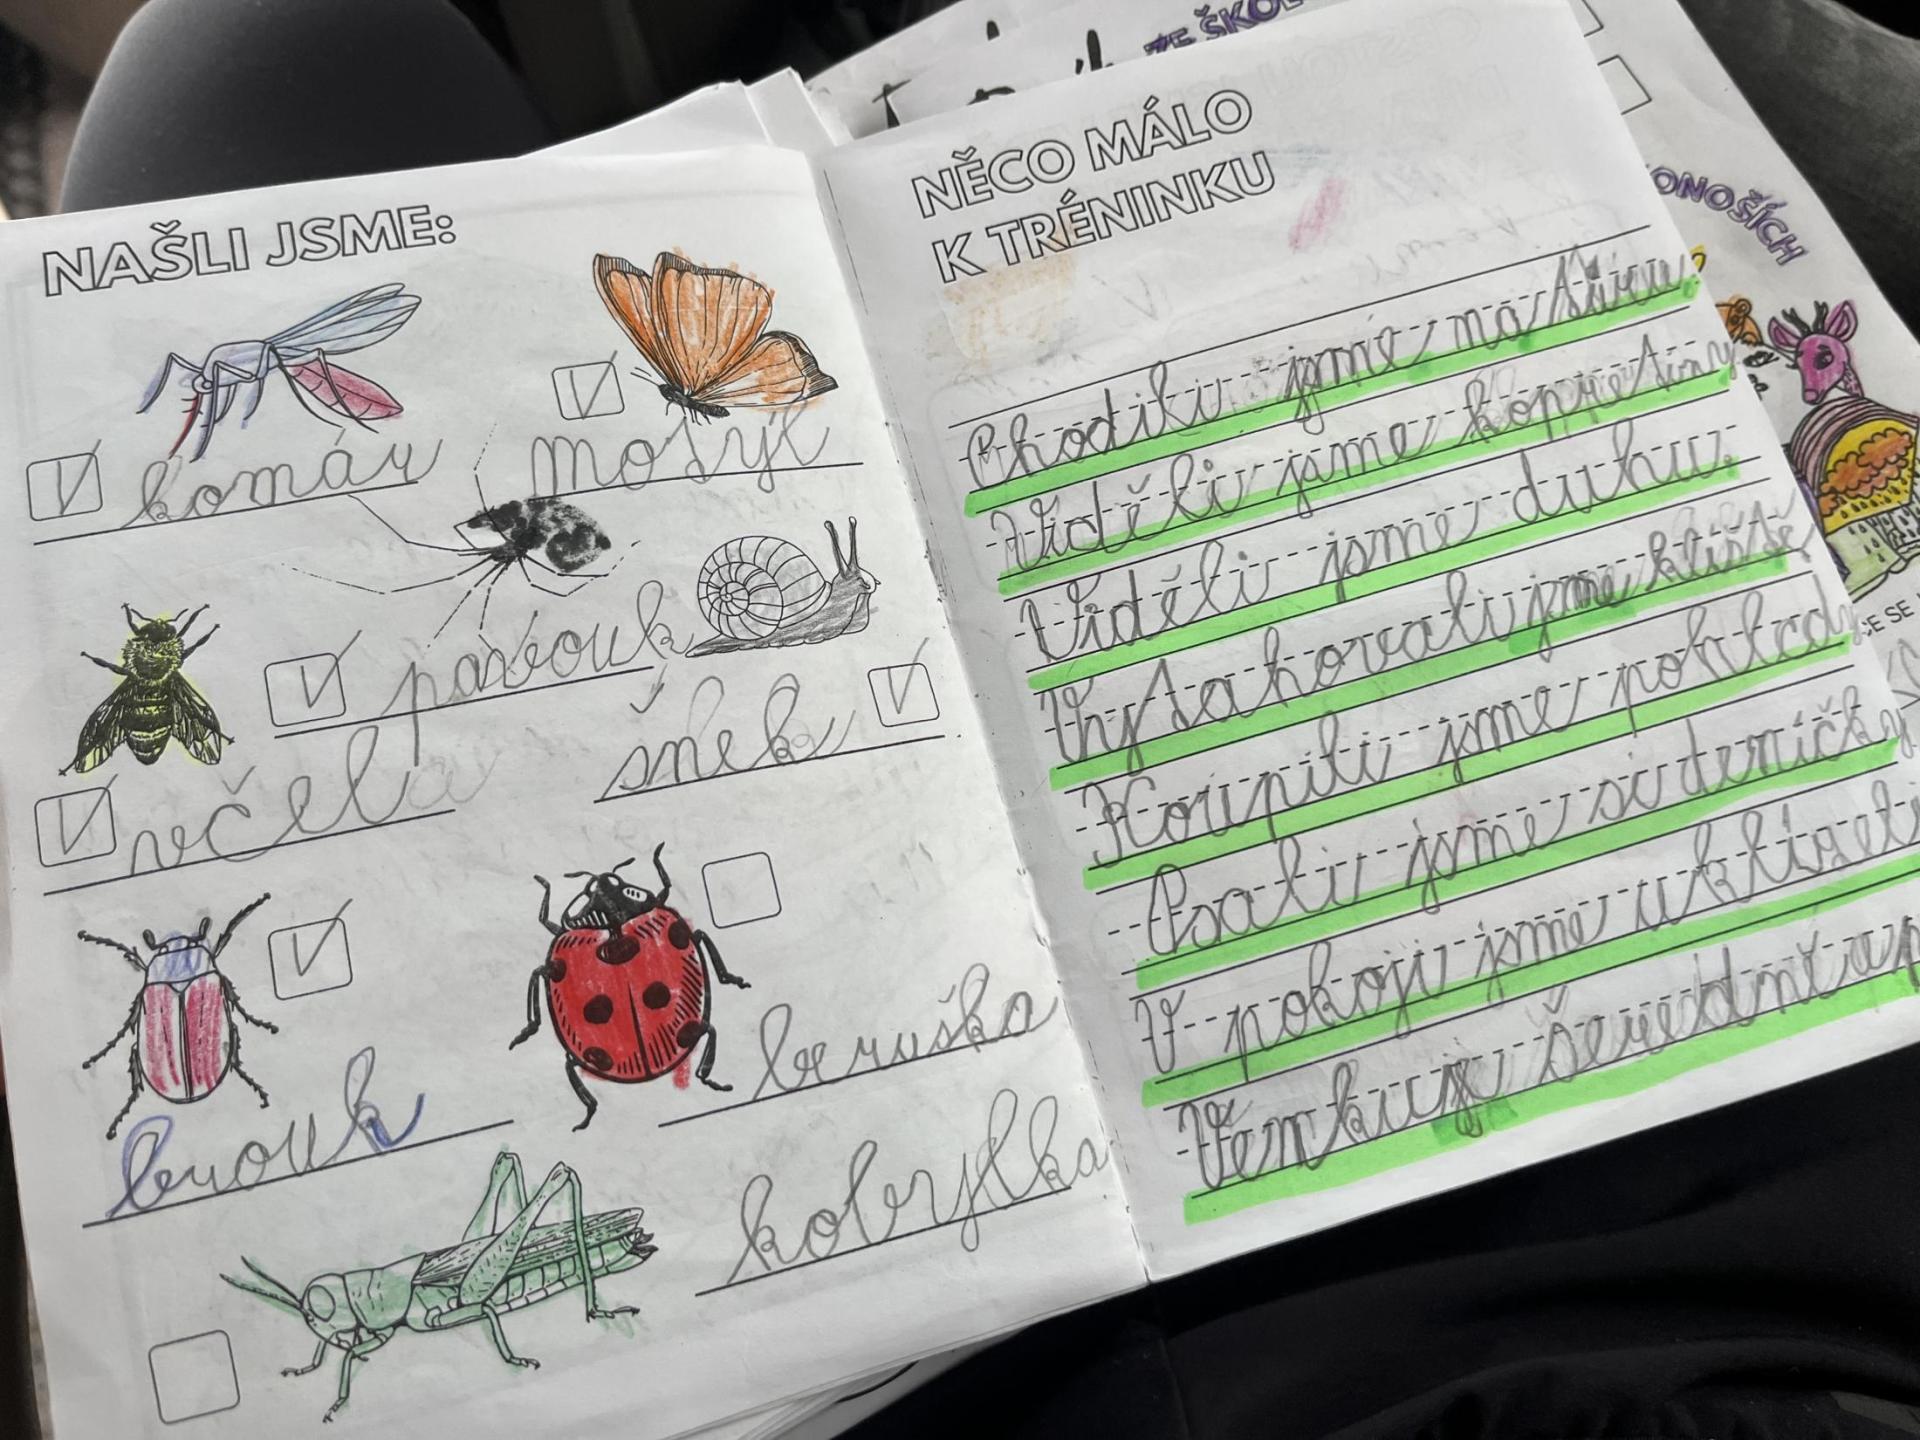 NAŠLI JSME:
komár
motýl
pavouk
šnek
včela
brouk
beruška
kobylka
NĚCO MÁLO
K TRÉNINKU
Chodili jsme na túru,
Viděli jsme kopretiny
Viděli jsme duhu.
Vytahovali jsme klíště
Koupili jsme pohledy
Psali jsme si deníčky
V pokoji jsme uklízeli
Venku je
ZE ŠKOL
ONOŠÍCH
SE